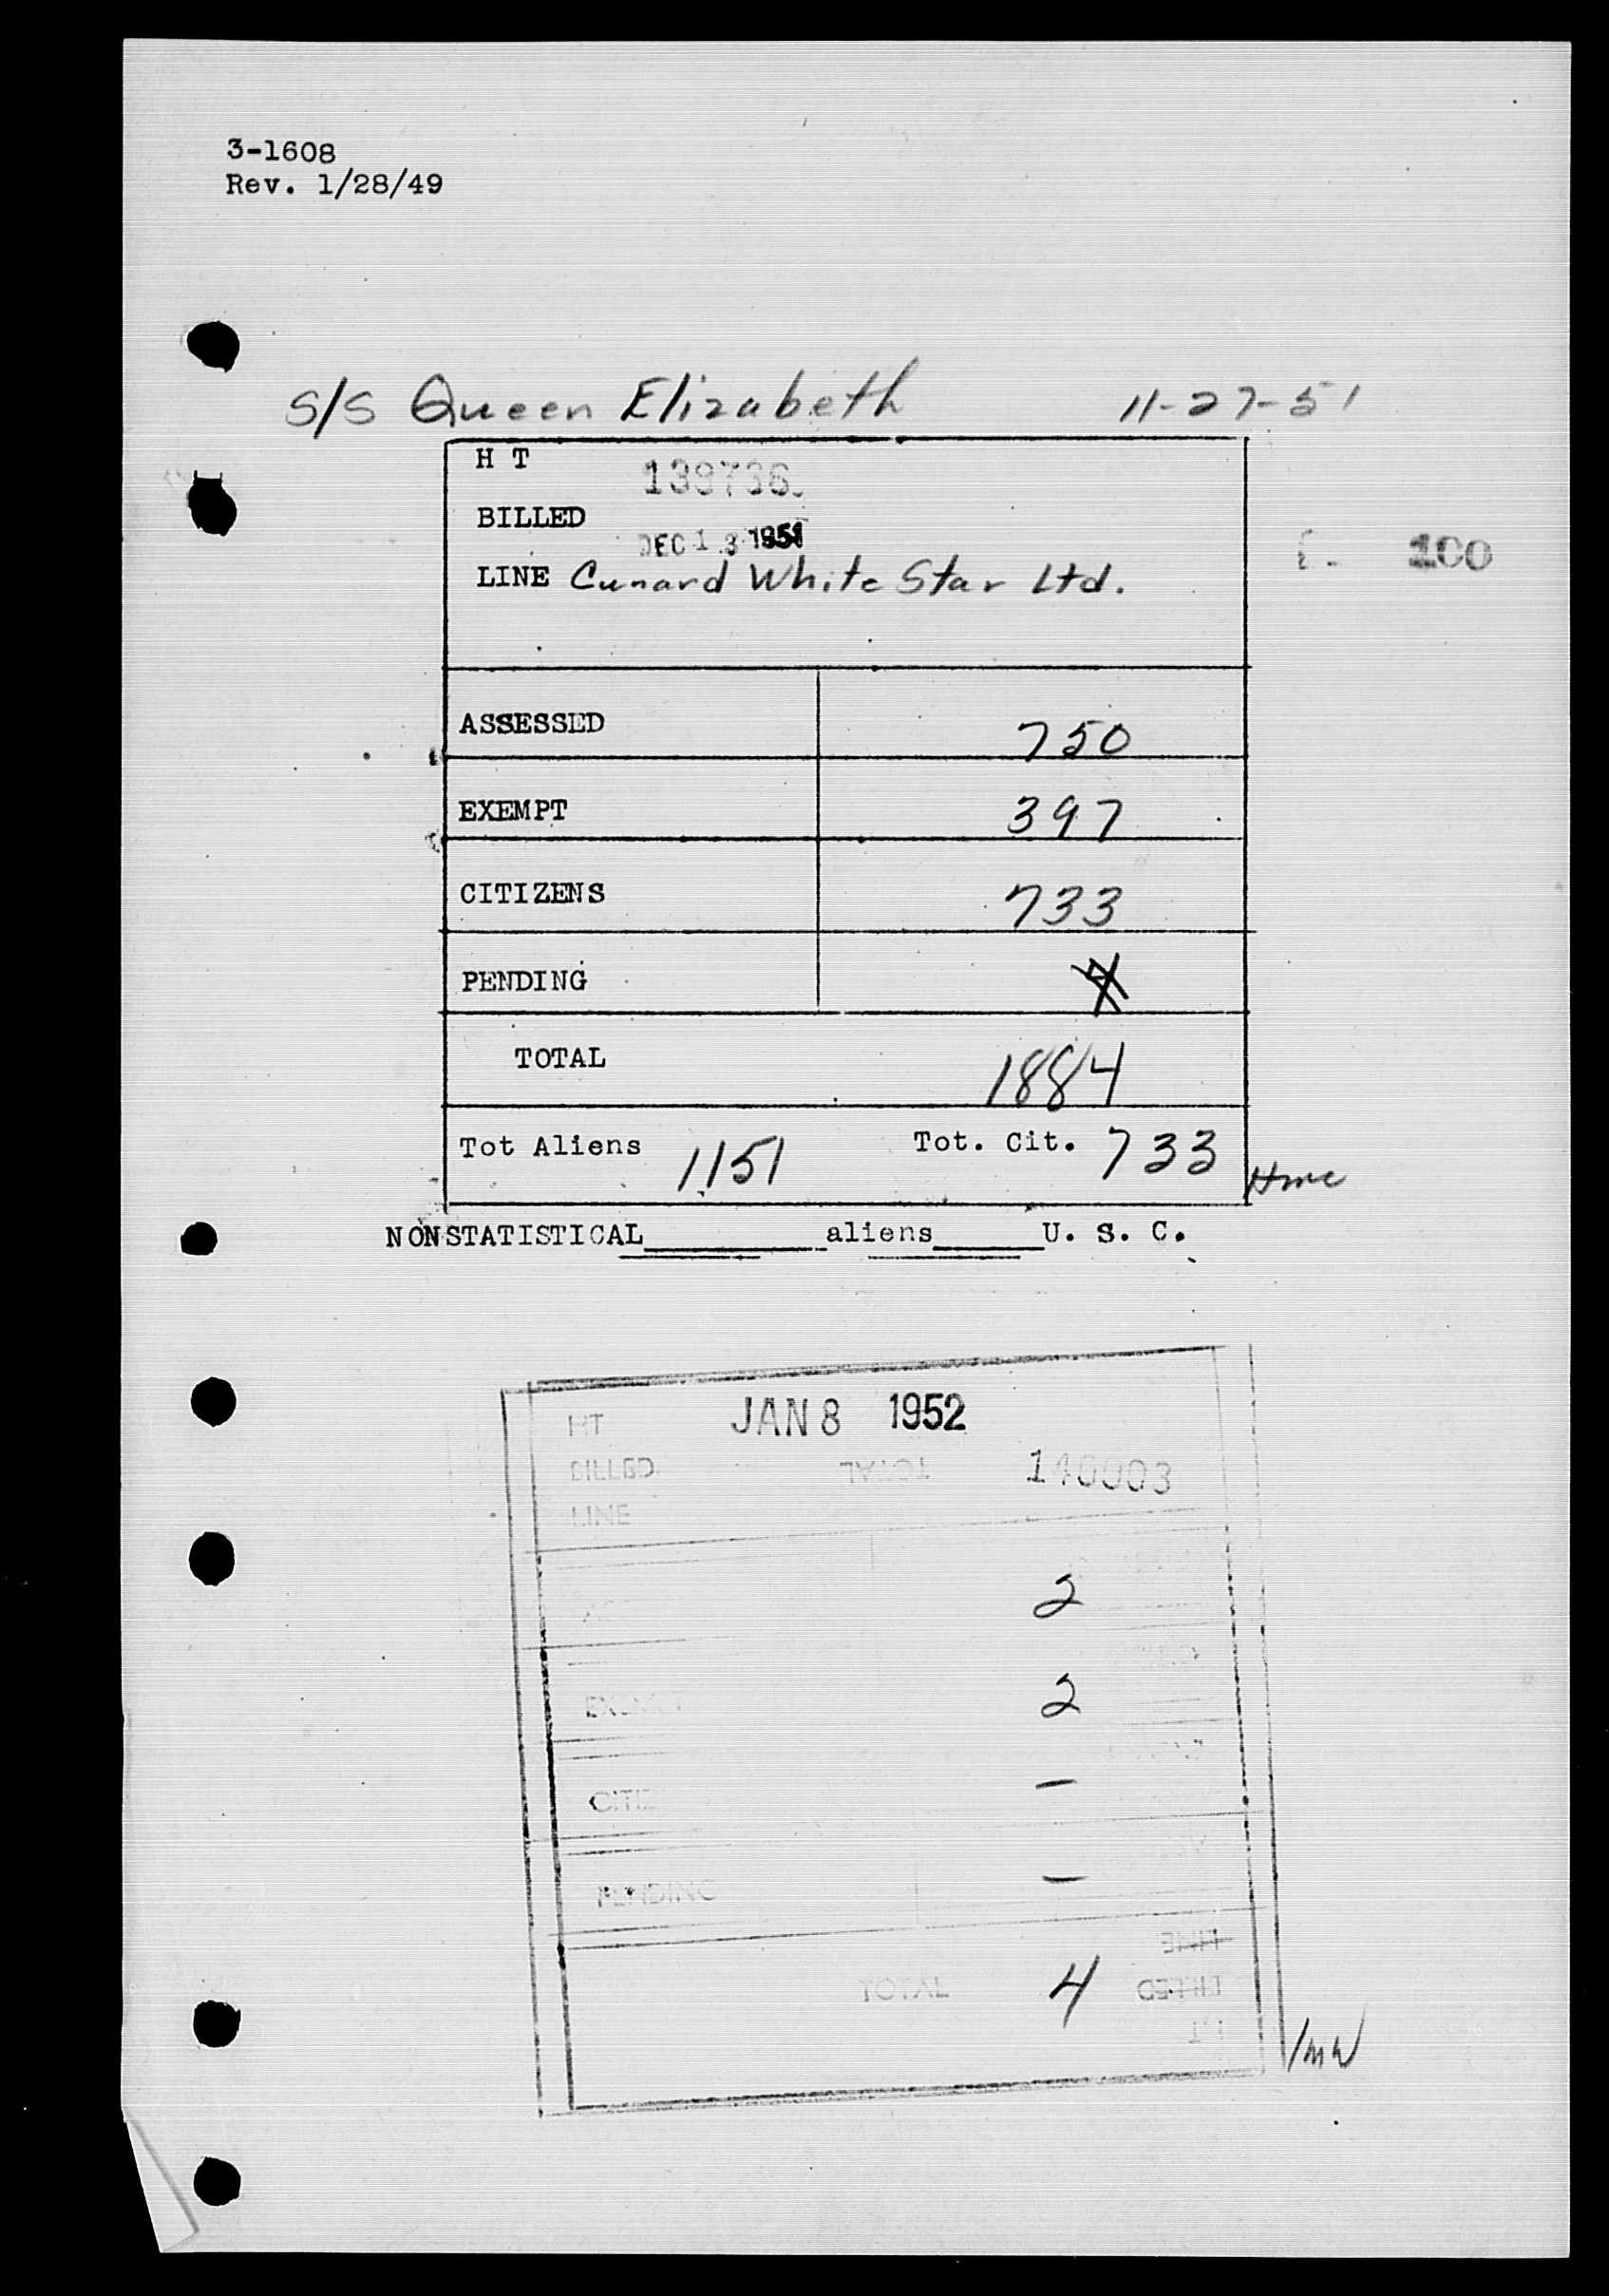 3-1608
Rev. 1/28/49
S/S Queen Elizabeth 11-27-51
H T 139736
BILLED
DEC 13 1951
LINE Cunard White Star Ltd.
100
ASSESSED 750
EXEMPT 397
CITIZENS 733
PENDING 4
TOTAL 1884
Tot Aliens 1151 Tot. Cit. 733
Hmc
NONSTATISTICAL aliens U. S. C.
HT JAN 8 1952
BILLED TOTAL 140003
LINE
2
EXEMPT 2
CITI –
PENDING –
LINE
TOTAL 4 BILLED
HT